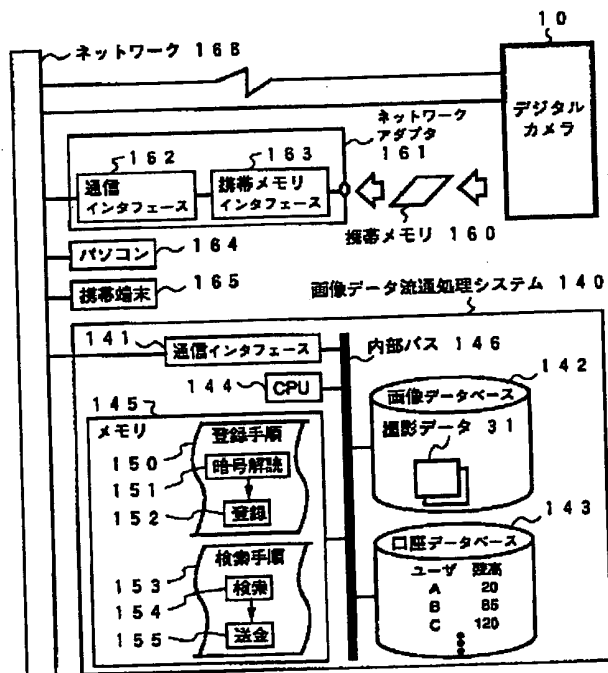 10
ネットワーク 168
デジタル
カメラ
ネットワーク
アダプタ
161
162
163
通信
インタフェース
携帯メモリ
インタフェース
携帯メモリ 160
パソコン
164
携帯端末
165
画像データ流通処理システム 140
141
通信インタフェース
内部バス 146
144
CPU
142
画像データベース
撮影データ 31
145
メモリ
登録手順
150
暗号解読
151
152
登録
143
口座データベース
ユーザ 残高
A 20
B 85
C 120
検索手順
153
検索
154
155
送金